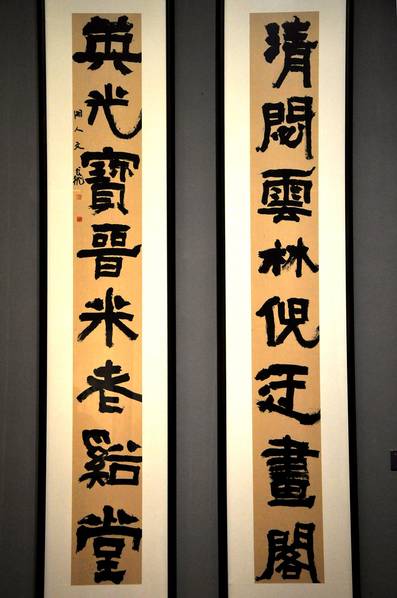 清閟雲林倪迂畫閣
英光寶晉米老谿堂
人文